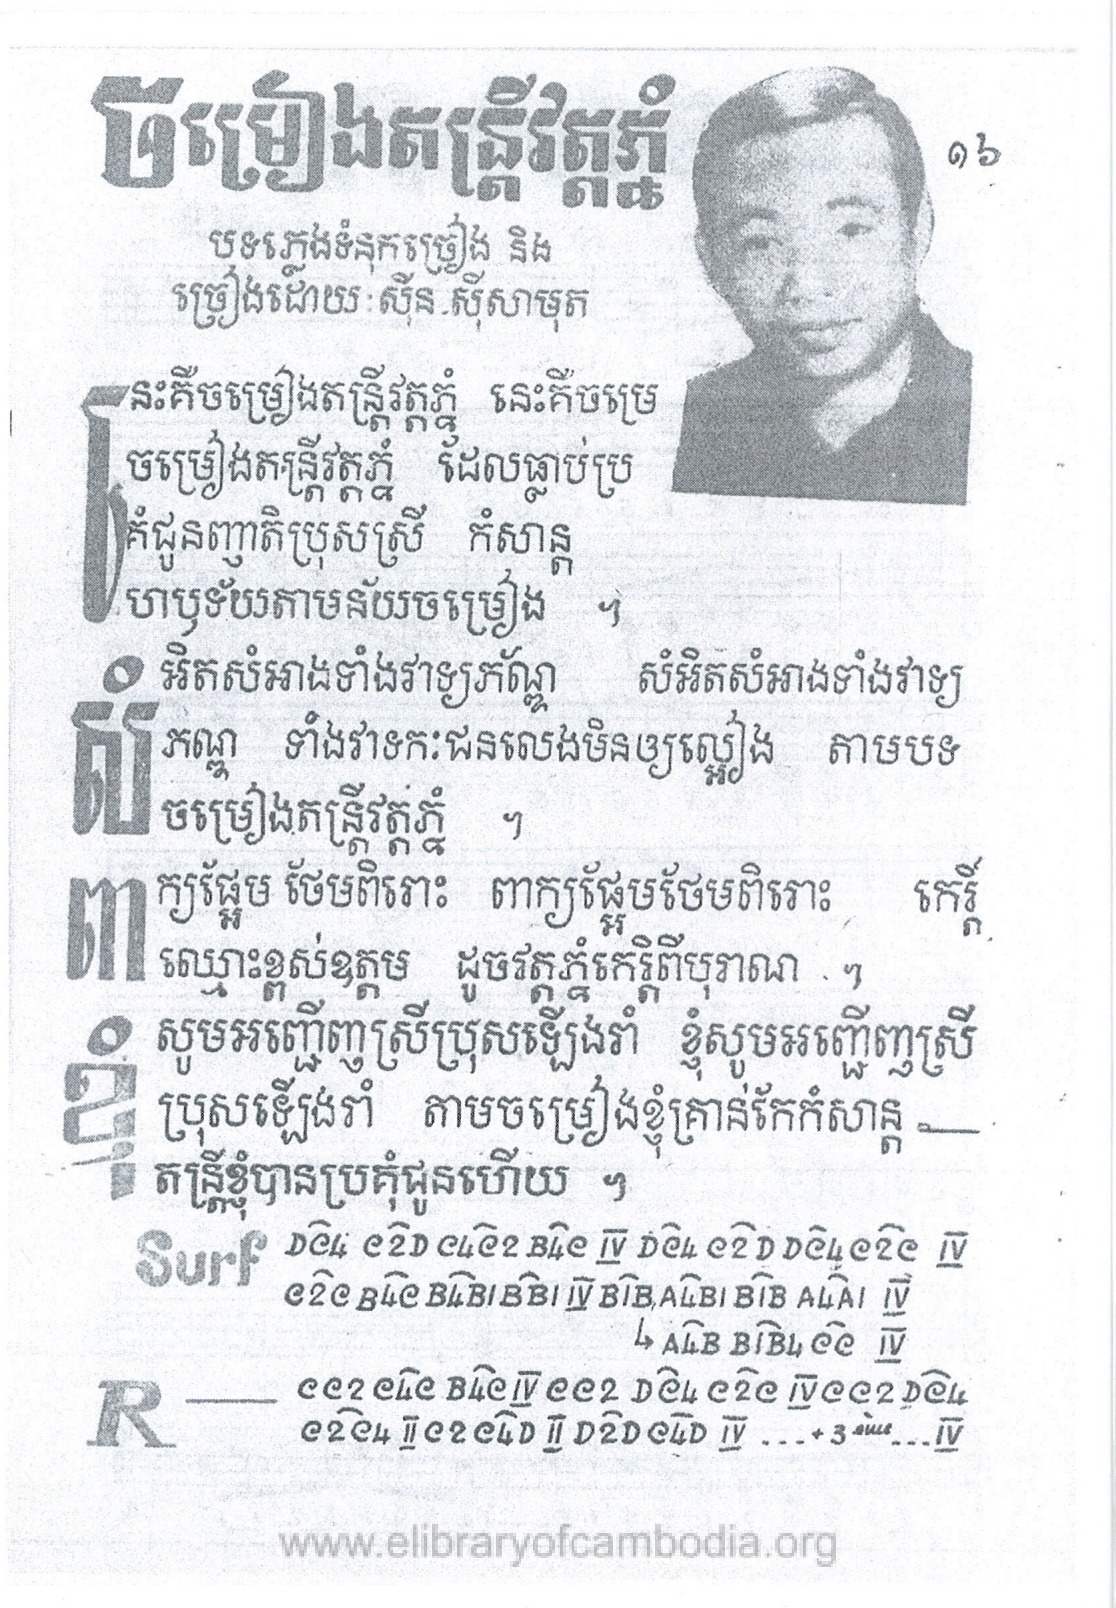 ចំម្រៀងតន្ត្រីវត្តភ្នំ
១៦
បទភ្លេងទំនុកច្រៀង និង
ច្រៀងដោយ: ស៊ីន.ស៊ីសាមុត
នេះគឺចម្រៀងតន្ត្រីវត្តភ្នំ នេះគឺចម្រេ
ចម្រៀងតន្ត្រីវត្តភ្នំ ដែលធ្លាប់ប្រ
គំជូនញាតិប្រុសស្រី កំសាន្ត
ហឫទ័យតាមន័យចម្រៀង ។
សំអិតសំអាងទាំងវាទ្យភណ្ឌ សំអិតសំអាងទាំងវាទ្យ
ភណ្ឌ ទាំងវាទកៈជនលេងមិនឲ្យល្អៀង តាមបទ
ចម្រៀងតន្ត្រីវត្តភ្នំ ។
ពាក្យផ្អែម ថែមពិរោះ ពាក្យផ្អែមថែមពិរោះ កេរ្តិ៍
ឈ្មោះខ្ពស់ឧត្តម ដូចវត្តភ្នំកេរ្តិពីបុរាណ ។
ខ្ញុំសូមអញ្ជើញស្រីប្រុសឡើងរាំ ខ្ញុំសូមអញ្ជើញស្រី
ប្រុសឡើងរាំ តាមចម្រៀងខ្ញុំគ្រាន់កែកំសាន្ត —
តន្ត្រីខ្ញុំបានប្រគុំជូនហើយ ។
Surf DC4 C2D C4C2 B4C IV DC4 C2D DC4C2C IV
C2C B4C B4B1BB1 IV B1B,A4B1 B1B A4A1 IV
↳ A4B B1B4 CC IV
R — CC2 C4C B4C IV CC2 DC4 C2C IV CC2 DC4
C2C4 II C2C4D II D2DC4D IV ...+3 ... IV
www.elibraryofcambodia.org